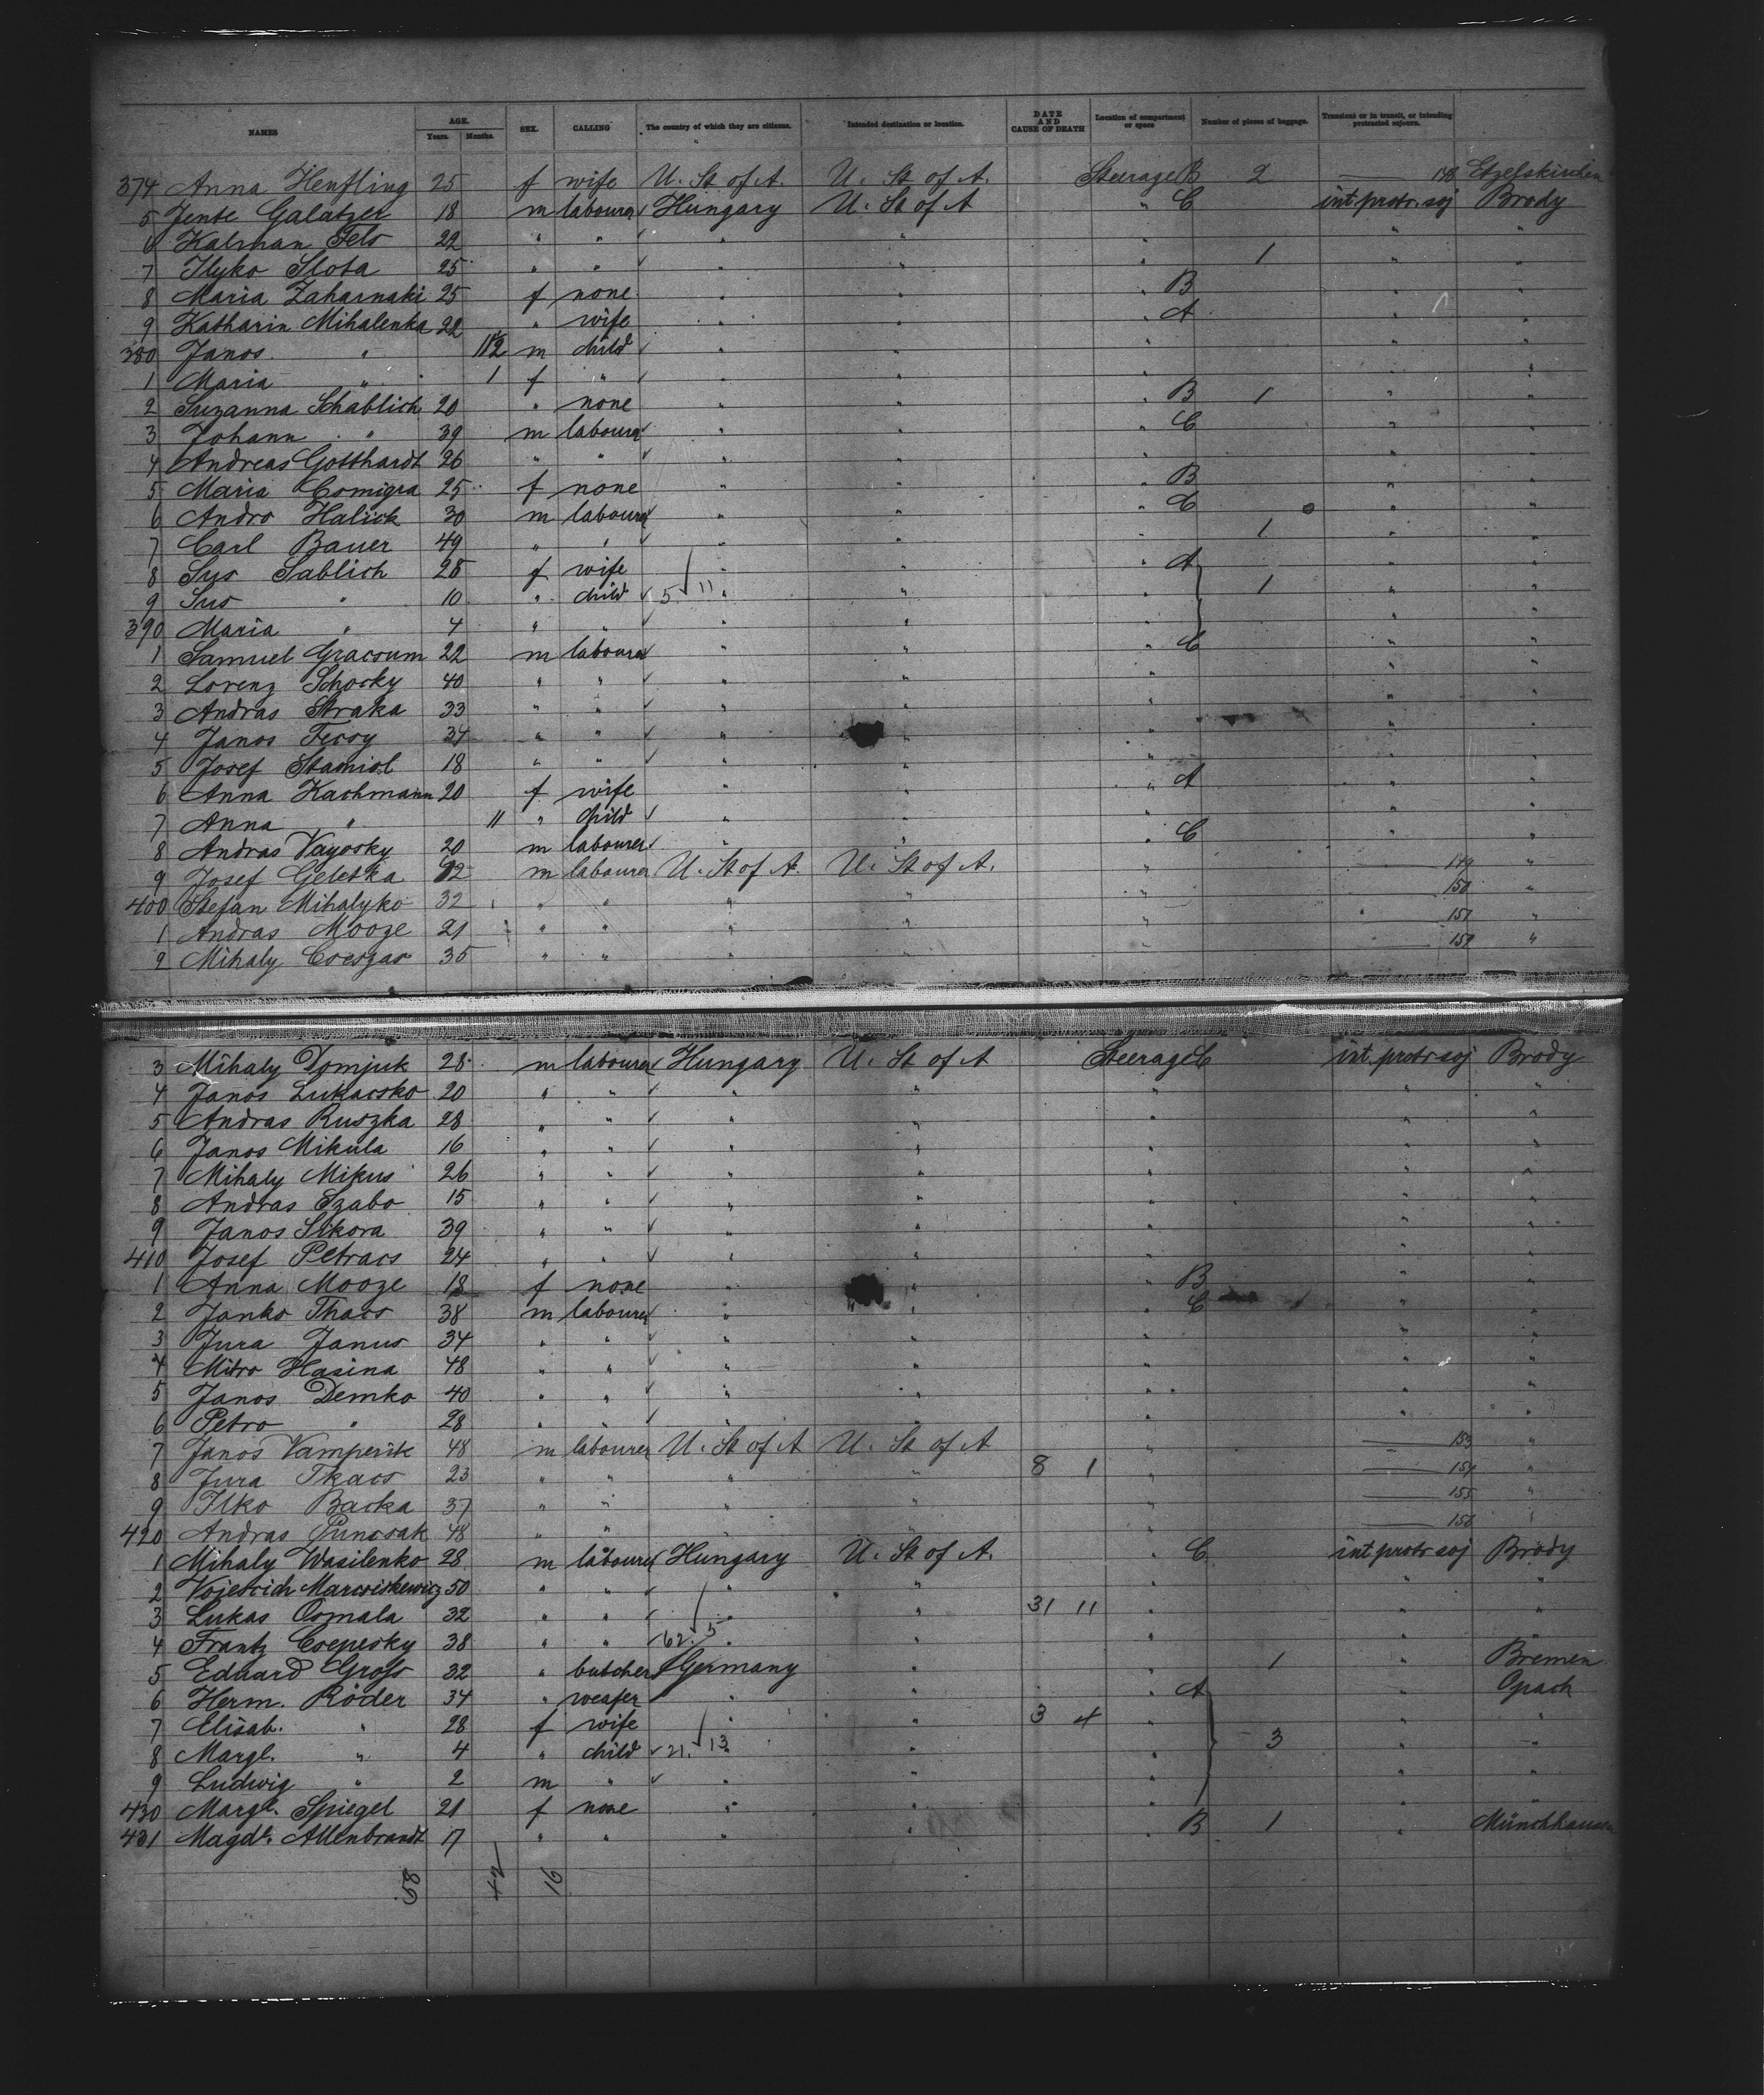 NAMES AGE. Years. Months. SEX. CALLING The country of which they are citizens. Intended destination or location. DATE AND CAUSE OF DEATH Location of compartment or space Number of pieces of baggage. Transient or in transit, or intending protracted sojourn.
374 Anna Henfling 25 f wife U. St of A. U. St of A. Steerage B 2 — 148 Etzelskirchen
5 Jente Galatzer 18 m labourer Hungary U. St of A " C int. protr. soj Brody
6 Kalman Fels 22 " " " " " " "
7 Ilyko Slota 25 " " " " " 1 " "
8 Maria Zaharnaki 25 f none " " " B " "
9 Katharin Mihalenka 22 " wife " " " A "
380 Janos " 11/2 m child " " " " "
1 Maria " 1 f " " " " " "
2 Suzanna Schablich 20 " none " " " B 1 " "
3 Johann " 39 m labourer " " " C " "
4 Andreas Gotthardt 26 " " " " " " "
5 Maria Comigra 25 f none " " " B " "
6 Andro Halick 30 m labourer " " " C " "
7 Carl Bauer 49 " " " " " 1 " "
8 Sus Sablich 28 f wife " " " A " "
9 Sus " 10 " child 5 11 " " " 1 " "
390 Maria " 4 " " " " " " "
1 Samuel Gracsum 22 m labourer " " " C " "
2 Lorenz Schosky 40 " " " " " " "
3 Andras Straka 33 " " " " " " "
4 Janos Fecsy 34 " " " " " " "
5 Josef Stamiol 18 " " " " " " "
6 Anna Kachmann 20 f wife " " " A " "
7 Anna " 11 " child " " " " "
8 Andras Vayosky 20 m labourer " " " C " "
9 Josef Geletka 32 m labourer U. St of A. U. St of A. " — 149 "
400 Stefan Mihalyko 32 " " " " " — 150 "
1 Andras Mooze 21 " " " " " — 151 "
2 Mihaly Cseszar 35 " " " " " "
3 Mihaly Domjuk 28 m labourer Hungary U. St of A Steerage C int. protr soj Brody
4 Janos Lukacsko 20 " " " " " " "
5 Andras Ruszka 28 " " " " " " "
6 Janos Mikula 16 " " " " " " "
7 Mihaly Mikus 26 " " " " " " "
8 Andras Szabo 15 " " " " " " "
9 Janos Sikora 39 " " " " " " "
410 Josef Petracs 24 " " " " " " "
1 Anna Mooze 18 f none " " " B " "
2 Janko Thacs 38 m labourer " " " C " "
3 Jura Janus 34 " " " " " " "
4 Mitro Hasina 48 " " " " " " "
5 Janos Demko 40 " " " " " " "
6 Petro " 28 " " " " " " "
7 Janos Vamperik 48 m labourer U. St of A U. St of A " — 153 "
8 Jura Tkacs 23 " " " " 8 1 " — 154 "
9 Ilko Backa 37 " " " " " — 155 "
420 Andras Puncsak 48 " " " " " — 156 "
1 Mihaly Wasilenko 28 m labourer Hungary U. St of A. " C int protr soj Brody
2 Vojescich Marcziskewicz 50 " " " " " " "
3 Lukas Osmala 32 " " " " 31 11 " " "
4 Frantz Csepesky 38 " " 62. 5 " " " " "
5 Eduard Gross 32 " butcher Germany " " 1 " Bremen
6 Herm. Röder 34 " weafer " " " A " Opach
7 Elisab. " 28 f wife " " 3 4 " " "
8 Margt. " 4 " child 21. 13 " " " 3 " "
9 Ludwig " 2 m " " " " " "
430 Margt. Spiegel 21 f none " " " " "
431 Magdl. Allenbrandt 17 " " " " " B 1 " Münchhausen
58 42 16